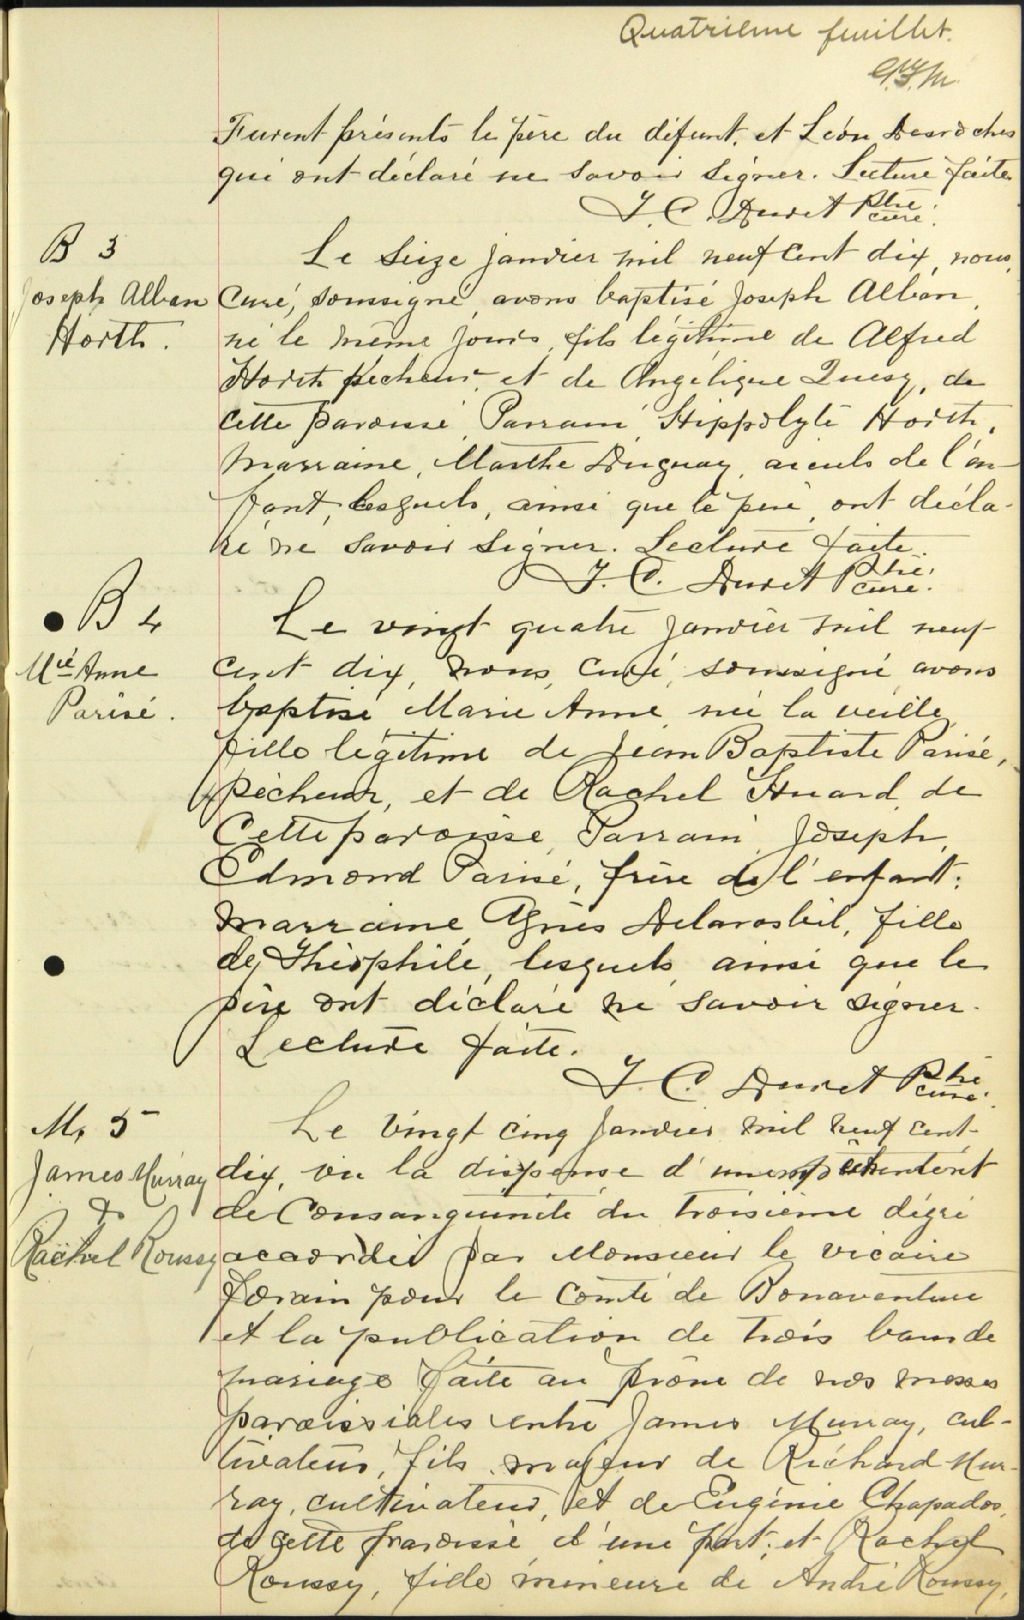 Quatrième feuillet.
Furent présents le père du défunt, et Léon Desroches
qui ont déclaré ne savoir signer. Lecture faite
J. C. Duret Ptre curé.
B 3
Joseph Alban
Horth.
Le seize janvier mil neuf cent dix, nous,
Curé, soussigné, avons baptisé Joseph Alban,
né le même jours, fils légitime de Alfred
Horth pêcheur, et de Angélique Quesy, de
cette paroisse, Parrain, Hippolyte Horth,
Marraine, Marthe Duguay, aieuls de l'en-
fant, lesquels, ainsi que le père, ont décla-
ré ne savoir signer. Lecture faite.
J. C. Duret Ptre. curé.
B 4
Mié Anne
Parisé.
Le vingt quatre janvier mil neuf
cent dix, nous, curé, soussigné avons
baptisé Marie Anne, née la veille,
fille légitime de Jean Baptiste Parisé,
pêcheur, et de Rachel Huard, de
Cette paroisse, Parrain, Joseph,
Edmond Parisé, frère de l'enfant;
marraine, Agnès Delarosbil, fille
de Théophile, lesquels ainsi que le
père ont déclaré ne savoir signer.
Lecture faite.
J. C. Duret Ptre curé.
M. 5
James Murray
&
Rachel Roussy
Le vingt cinq janvier mil neuf cent
dix, vu la dispense d'un empêchement
de Consanguinité du troisième dégré
accordée par Monsieur le vicaire
forain pour le comté de Bonaventure
et la publication de trois bans de
mariage faite au prône de nos messes
paroissiales entre James Murray, cul-
tivateur, fils majeur de Richard Mur-
ray, cultivateur, et de Eugénie Chapados,
de cette paroisse d'une part; et Rachel
Roussy, fille mineure de André Roussy,